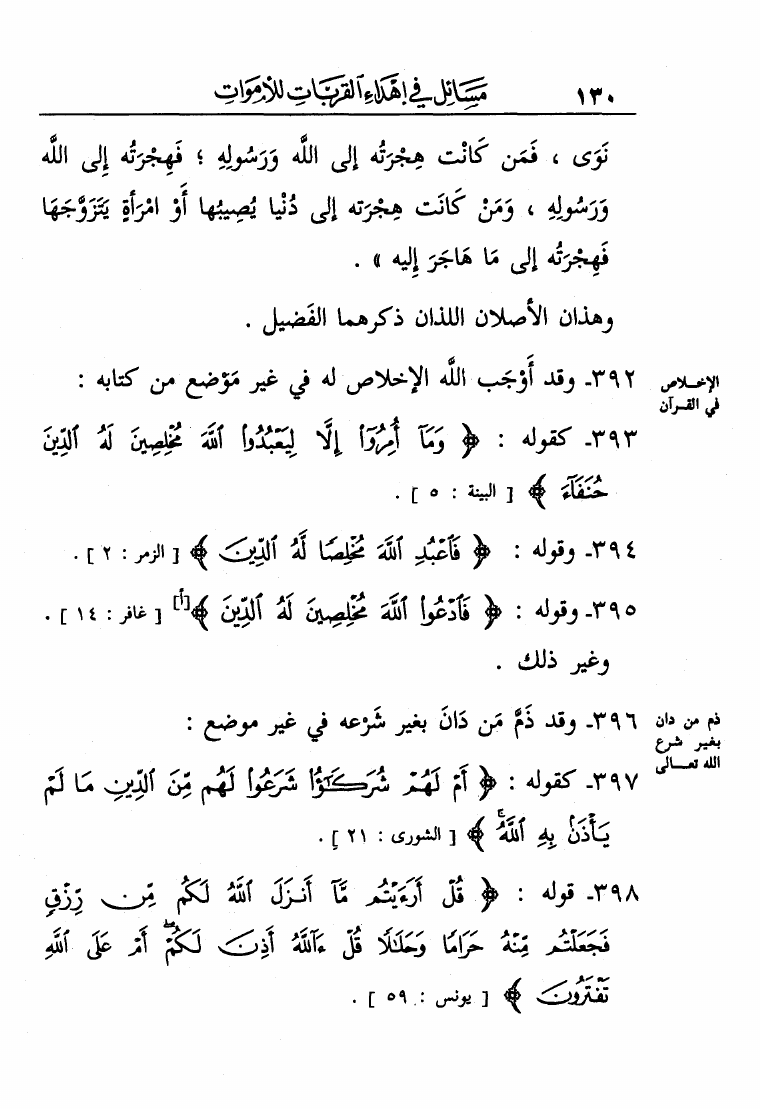 ١٣٠ مسائل في إهداء القربات للأموات
نَوَى ، فَمَن كَانْت هِجْرَتُه إلى اللَّه وَرَسُولِهِ ؛ فَهِجْرَتُه إِلى اللَّه
وَرَسُولِهِ ، وَمَنْ كَانَت هِجْرَته إلى دُنْيا يُصِيبُها أَوْ امْرَأةٍ يَتَزَوَّجَهَا
فَهِجْرَتُه إلى مَا هَاجَرَ إليه » .
وهذان الأصلان اللذان ذكرهما الفَضيل .
الإخـلاص
في القـرآن
٣٩٢ـ وقد أَوْجَب اللَّه الإخلاص له في غير مَوْضع من كتابه :
٣٩٣ـ كقوله : ﴿ وَمَآ أُمِرُوٓا۟ إِلَّا لِيَعْبُدُوا۟ ٱللَّهَ مُخْلِصِينَ لَهُ ٱلدِّينَ
حُنَفَآءَ ﴾ [ البينة : ٥ ] .
٣٩٤ـ وقوله : ﴿ فَٱعْبُدِ ٱللَّهَ مُخْلِصًا لَّهُ ٱلدِّينَ ﴾ [ الزمر : ٢ ] .
٣٩٥ـ وقوله : ﴿ فَٱدْعُوا۟ ٱللَّهَ مُخْلِصِينَ لَهُ ٱلدِّينَ ﴾[أ] [ غافر : ١٤ ] .
وغير ذلك .
ذم من دان
بغير شرع
الله تعـالى
٣٩٦ـ وقد ذَمَّ مَن دَانَ بغير شَرْعه في غير موضع :
٣٩٧ـ كقوله : ﴿ أَمْ لَهُمْ شُرَكَٰٓؤُا۟ شَرَعُوا۟ لَهُم مِّنَ ٱلدِّينِ مَا لَمْ
يَأْذَنۢ بِهِ ٱللَّهُ ۚ ﴾ [ الشورى : ٢١ ] .
٣٩٨ـ قوله : ﴿ قُلْ أَرَءَيْتُم مَّآ أَنزَلَ ٱللَّهُ لَكُم مِّن رِّزْقٍ
فَجَعَلْتُم مِّنْهُ حَرَامًا وَحَلَٰلًا قُلْ ءَآللَّهُ أَذِنَ لَكُمْ ۖ أَمْ عَلَى ٱللَّهِ
تَفْتَرُونَ ﴾ [ يونس : ٥٩ ] .